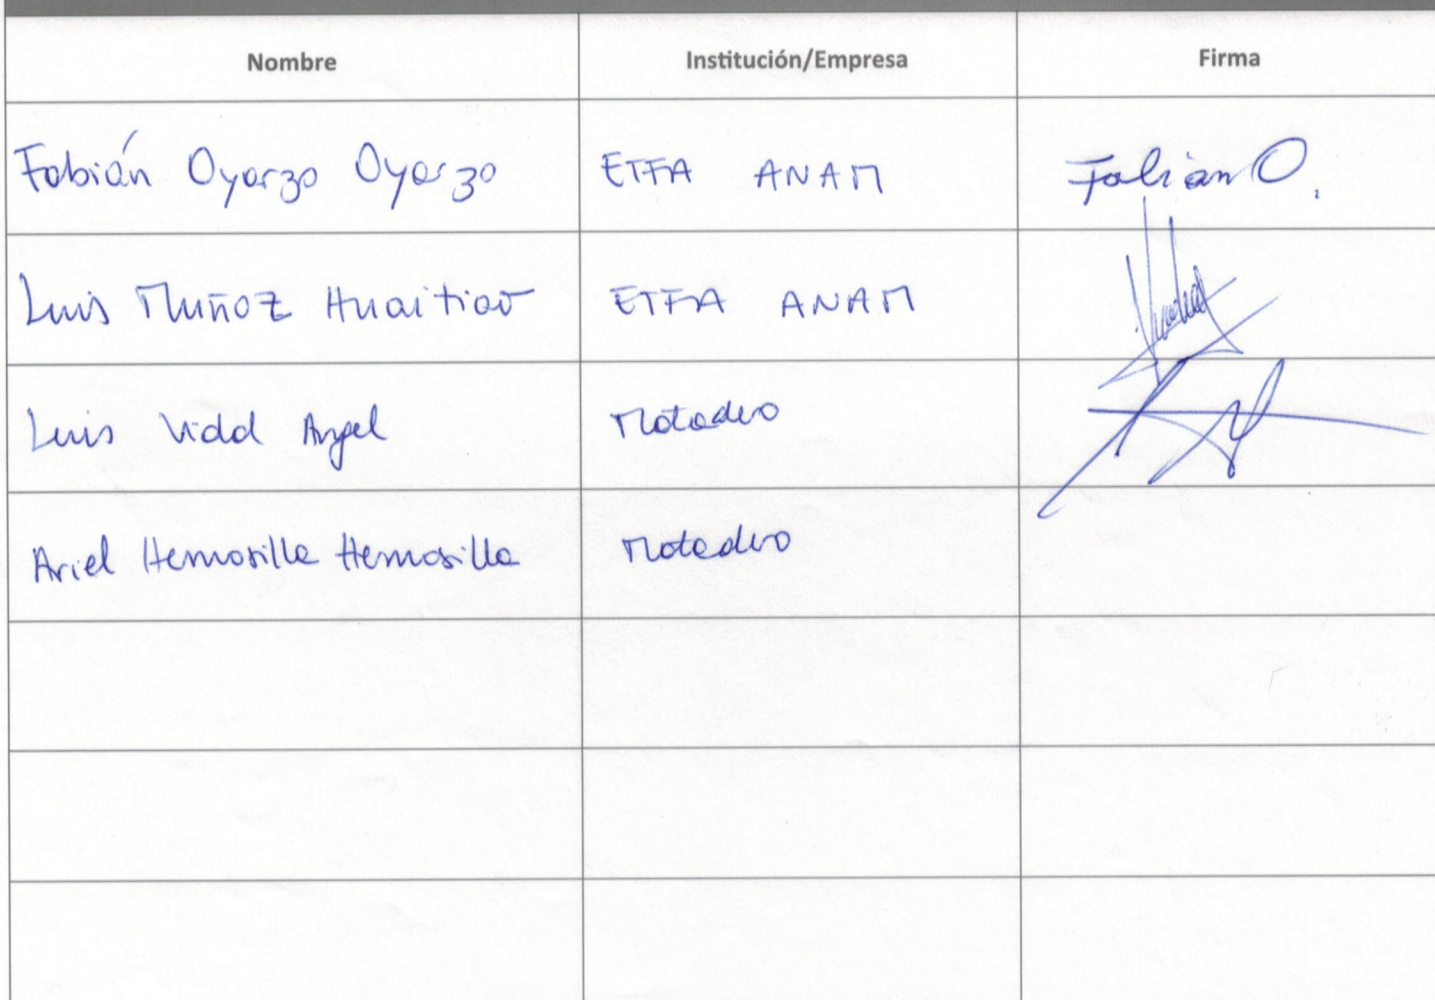 Nombre Institución/Empresa Firma
Fabián Oyarzo Oyarzo ETFA ANAM Fabián O.
Luis Muñoz Huaitiao ETFA ANAM
Luis Vidal Angel Matadero
Ariel Hemosilla Hemosilla Matadero